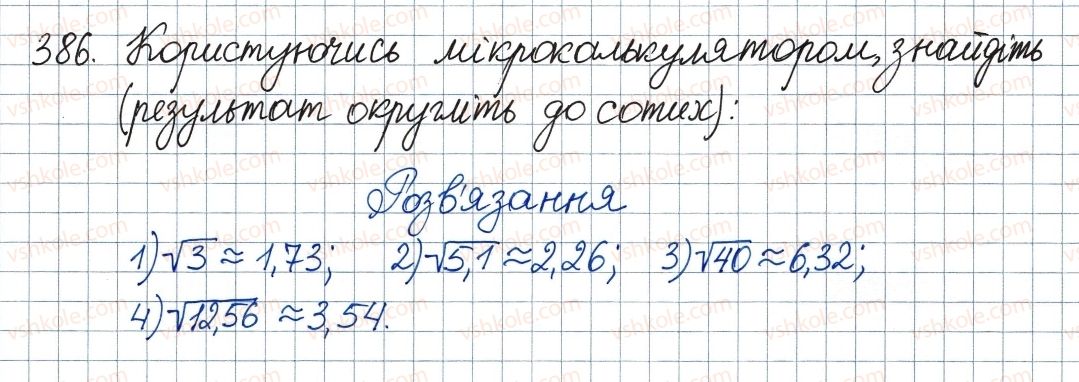 386. Користуючись мікрокалькулятором, знайдіть
(результат округліть до сотих):
Розв'язання
1) √3 ≈ 1,73; 2) √5,1 ≈ 2,26; 3) √40 ≈ 6,32;
4) √12,56 ≈ 3,54.